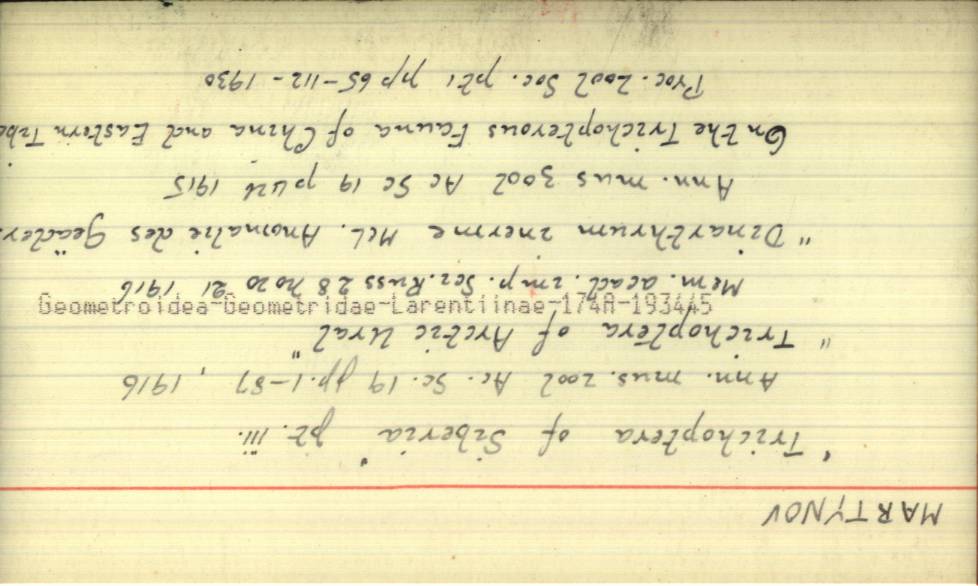 MARTYNOV
"Trichoptera of Siberia" pt. iii.
Ann. mus. zool Ac. Sc. 19 pp. 1-87, 1916
"Trichoptera of Arctic Ural"
Geometroidea-Geometridae-Larentiinae-174A-193445
Mem. acad. imp. Sci. Russ 28 no 20 21 1916
"Dinarthrum inerme McL. Anomalie des Geäders
Ann. mus zool Ac Sc 19 1915
On the Trichopterous Fauna of China and Eastern Tibe
Proc. Zool Soc. pt 1 pp 65-112 - 1930